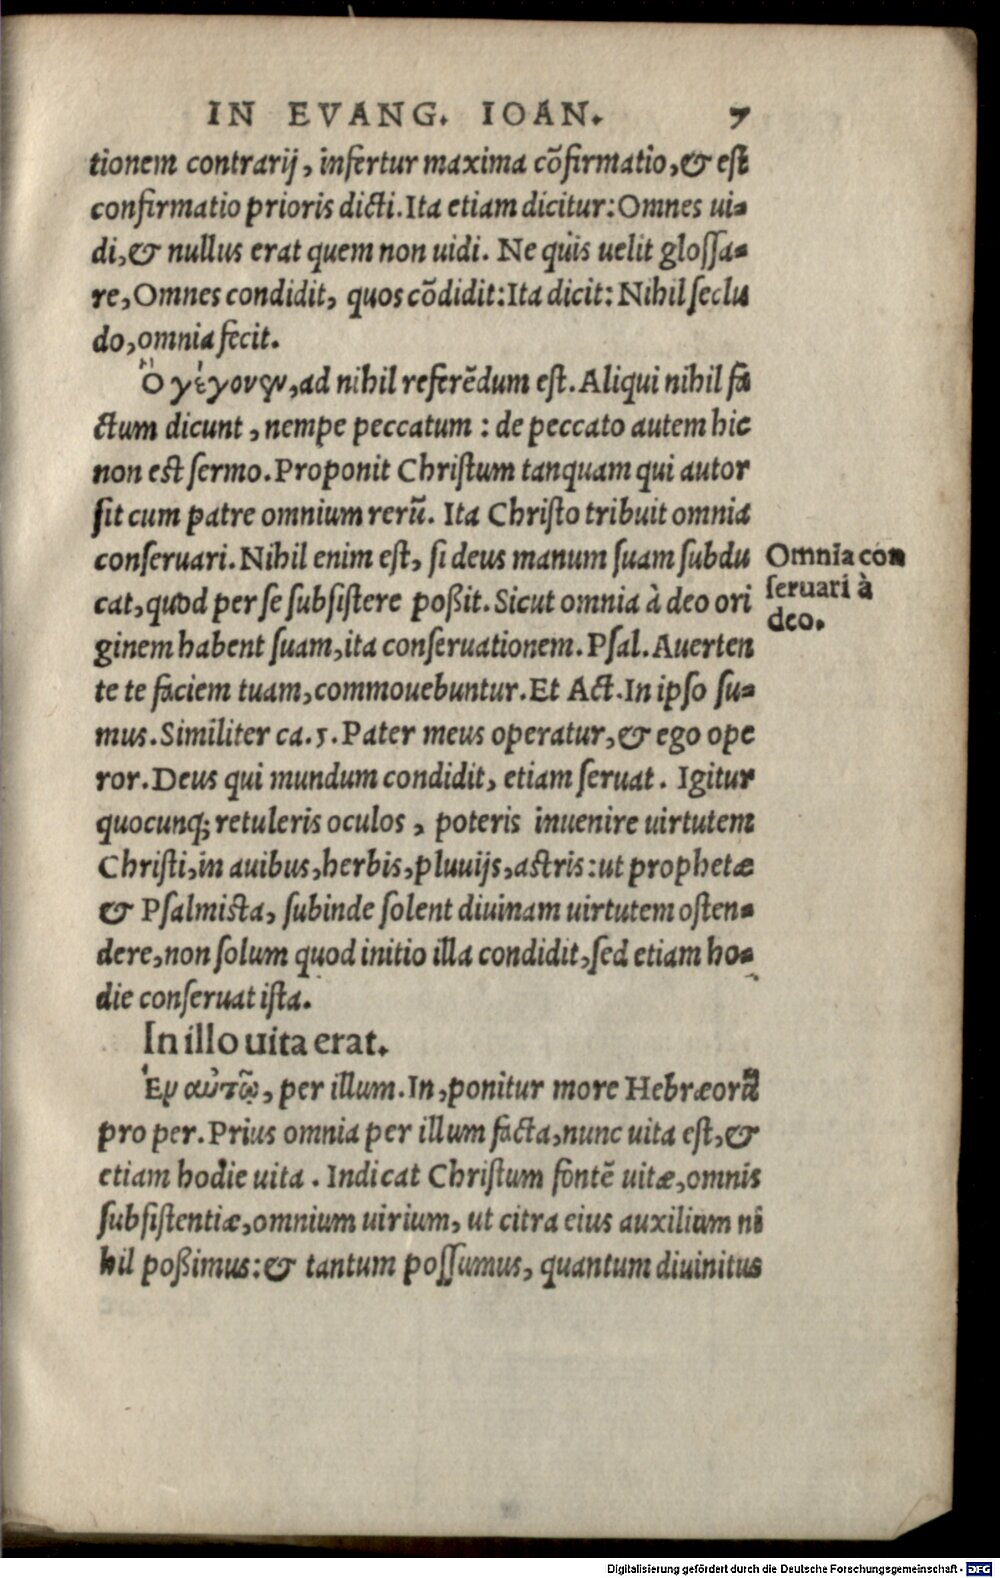 IN EVANG. IOAN. 7
tionem contrarij, infertur maxima cõfirmatio, & est
confirmatio prioris dicti. Ita etiam dicitur: Omnes ui-
di, & nullus erat quem non uidi. Ne quis uelit glossa-
re, Omnes condidit, quos cõdidit: Ita dicit: Nihil seclu
do, omnia fecit.
Ὃ γέγονεν, ad nihil referẽdum est. Aliqui nihil fa
ctum dicunt, nempe peccatum: de peccato autem hic
non est sermo. Proponit Christum tanquam qui autor
sit cum patre omnium rerũ. Ita Christo tribuit omnia
conseruari. Nihil enim est, si deus manum suam subdu
cat, quod per se subsistere poßit. Sicut omnia à deo ori
ginem habent suam, ita conseruationem. Psal. Auerten
te te faciem tuam, commouebuntur. Et Act. In ipso su-
mus. Similiter ca. 5. Pater meus operatur, & ego ope
ror. Deus qui mundum condidit, etiam seruat. Igitur
quocunq; retuleris oculos, poteris inuenire uirtutem
Christi, in auibus, herbis, pluuijs, astris: ut prophetæ
& Psalmista, subinde solent diuinam uirtutem osten-
dere, non solum quod initio illa condidit, sed etiam ho-
die conseruat ista.
In illo uita erat.
Ἐν αὐτῶ, per illum. In, ponitur more Hebræorũ
pro per. Prius omnia per illum facta, nunc uita est, &
etiam hodie uita. Indicat Christum fontẽ uitæ, omnis
subsistentiæ, omnium uirium, ut citra eius auxilium ni
hil poßimus: & tantum possumus, quantum diuinitus
Omnia con
seruari à
deo.
Digitalisierung gefördert durch die Deutsche Forschungsgemeinschaft - DFG